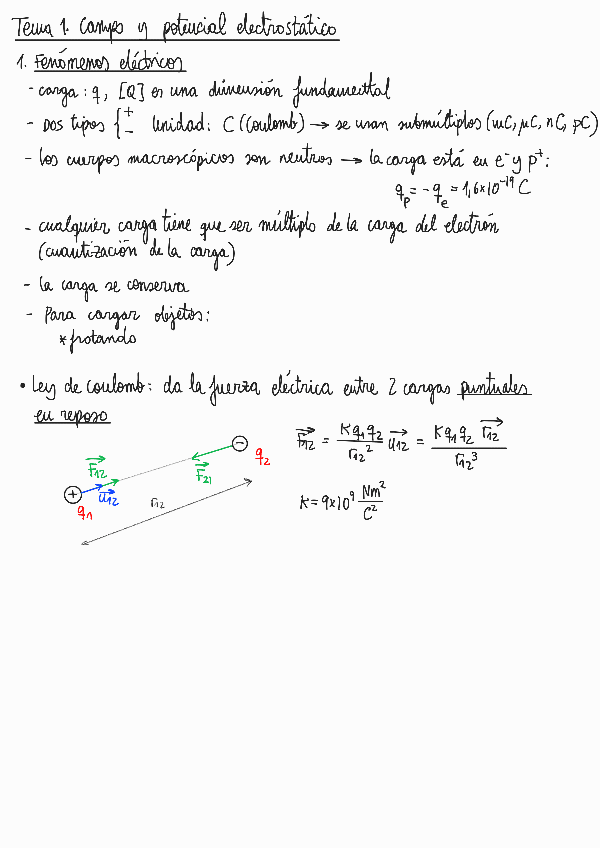 Tema 1. Campo y potencial electrostático
1. Fenómenos eléctricos
- carga: q, [Q] es una dimensión fundamental
- Dos tipos { + - Unidad: C (Coulomb) → se usan submúltiplos (mC, μC, nC, pC)
- Los cuerpos macroscópicos son neutros → la carga está en e⁻ y p⁺:
q_p = -q_e = 1,6×10⁻¹⁹ C
- cualquier carga tiene que ser múltiplo de la carga del electrón
(cuantización de la carga)
- La carga se conserva
- Para cargar objetos:
* frotando
• Ley de Coulomb: da la fuerza eléctrica entre 2 cargas puntuales
en reposo
F₁₂→ = K q₁ q₂ / r₁₂² u₁₂→ = K q₁ q₂ r₁₂→ / r₁₂³
- q₂
F₁₂→ F₂₁→
+ u₁₂→ r₁₂
q₁
K = 9×10⁹ Nm²/C²